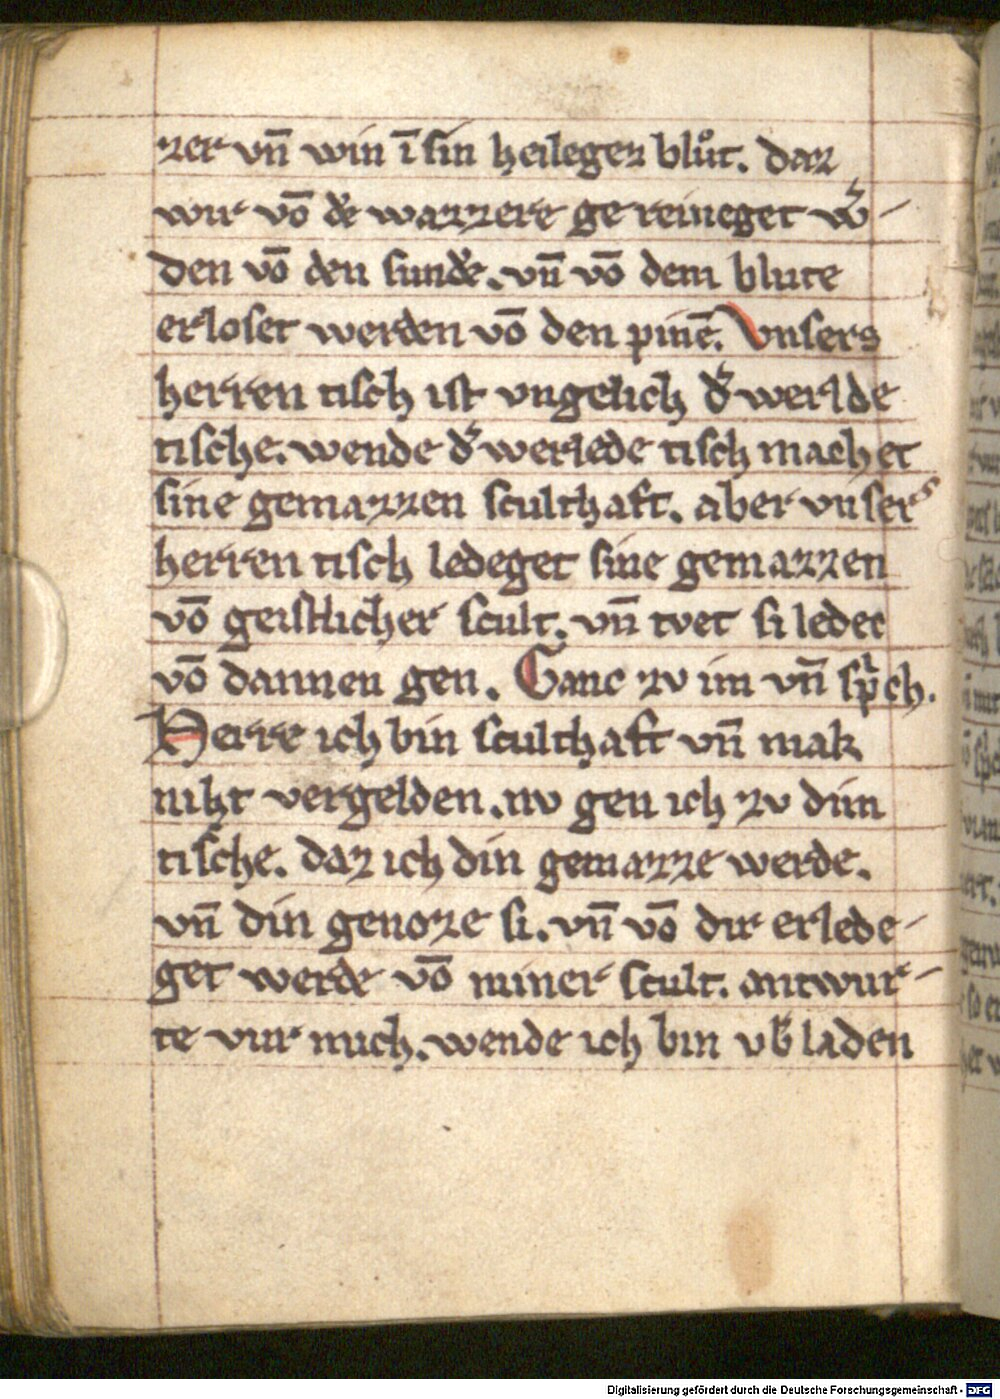 zer vn̄ win ī sin heilegez blůt. daz
wir vō dē wazzere ge reineget w̄-
den vō den sundē. vn̄ vō dem blute
erloset werden vō den pinē. Vnsers
herren tisch ist vngelich d̓ werlde
tische. wende d̓ werlede tisch machet
sine gemazzen sculthaft. aber vnsers
herren tisch ledeget sine gemazzen
vō geistlicher scult. vn̄ tvet si ledec
vō dannen gen. Ganc zv im vn̄ sprich.
Herre ich bin sculthaft vn̄ mak
niht vergelden. nv gen ich zv dim
tische. daz ich din gemazze werde.
vn̄ din genoze si. vn̄ vō dir erlede-
get werde vō miner scult. antwur-
te vur mich. wende ich bin vb̓laden
Digitalisierung gefördert durch die Deutsche Forschungsgemeinschaft - DFG